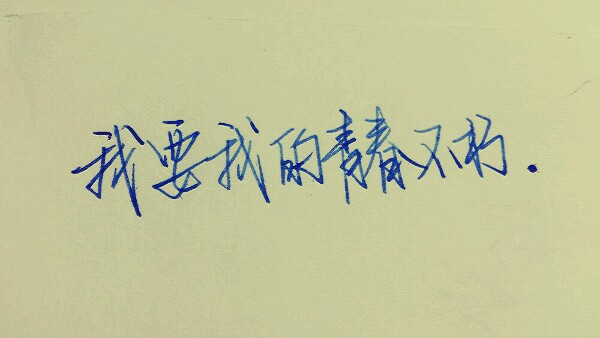 我要我的青春不朽.